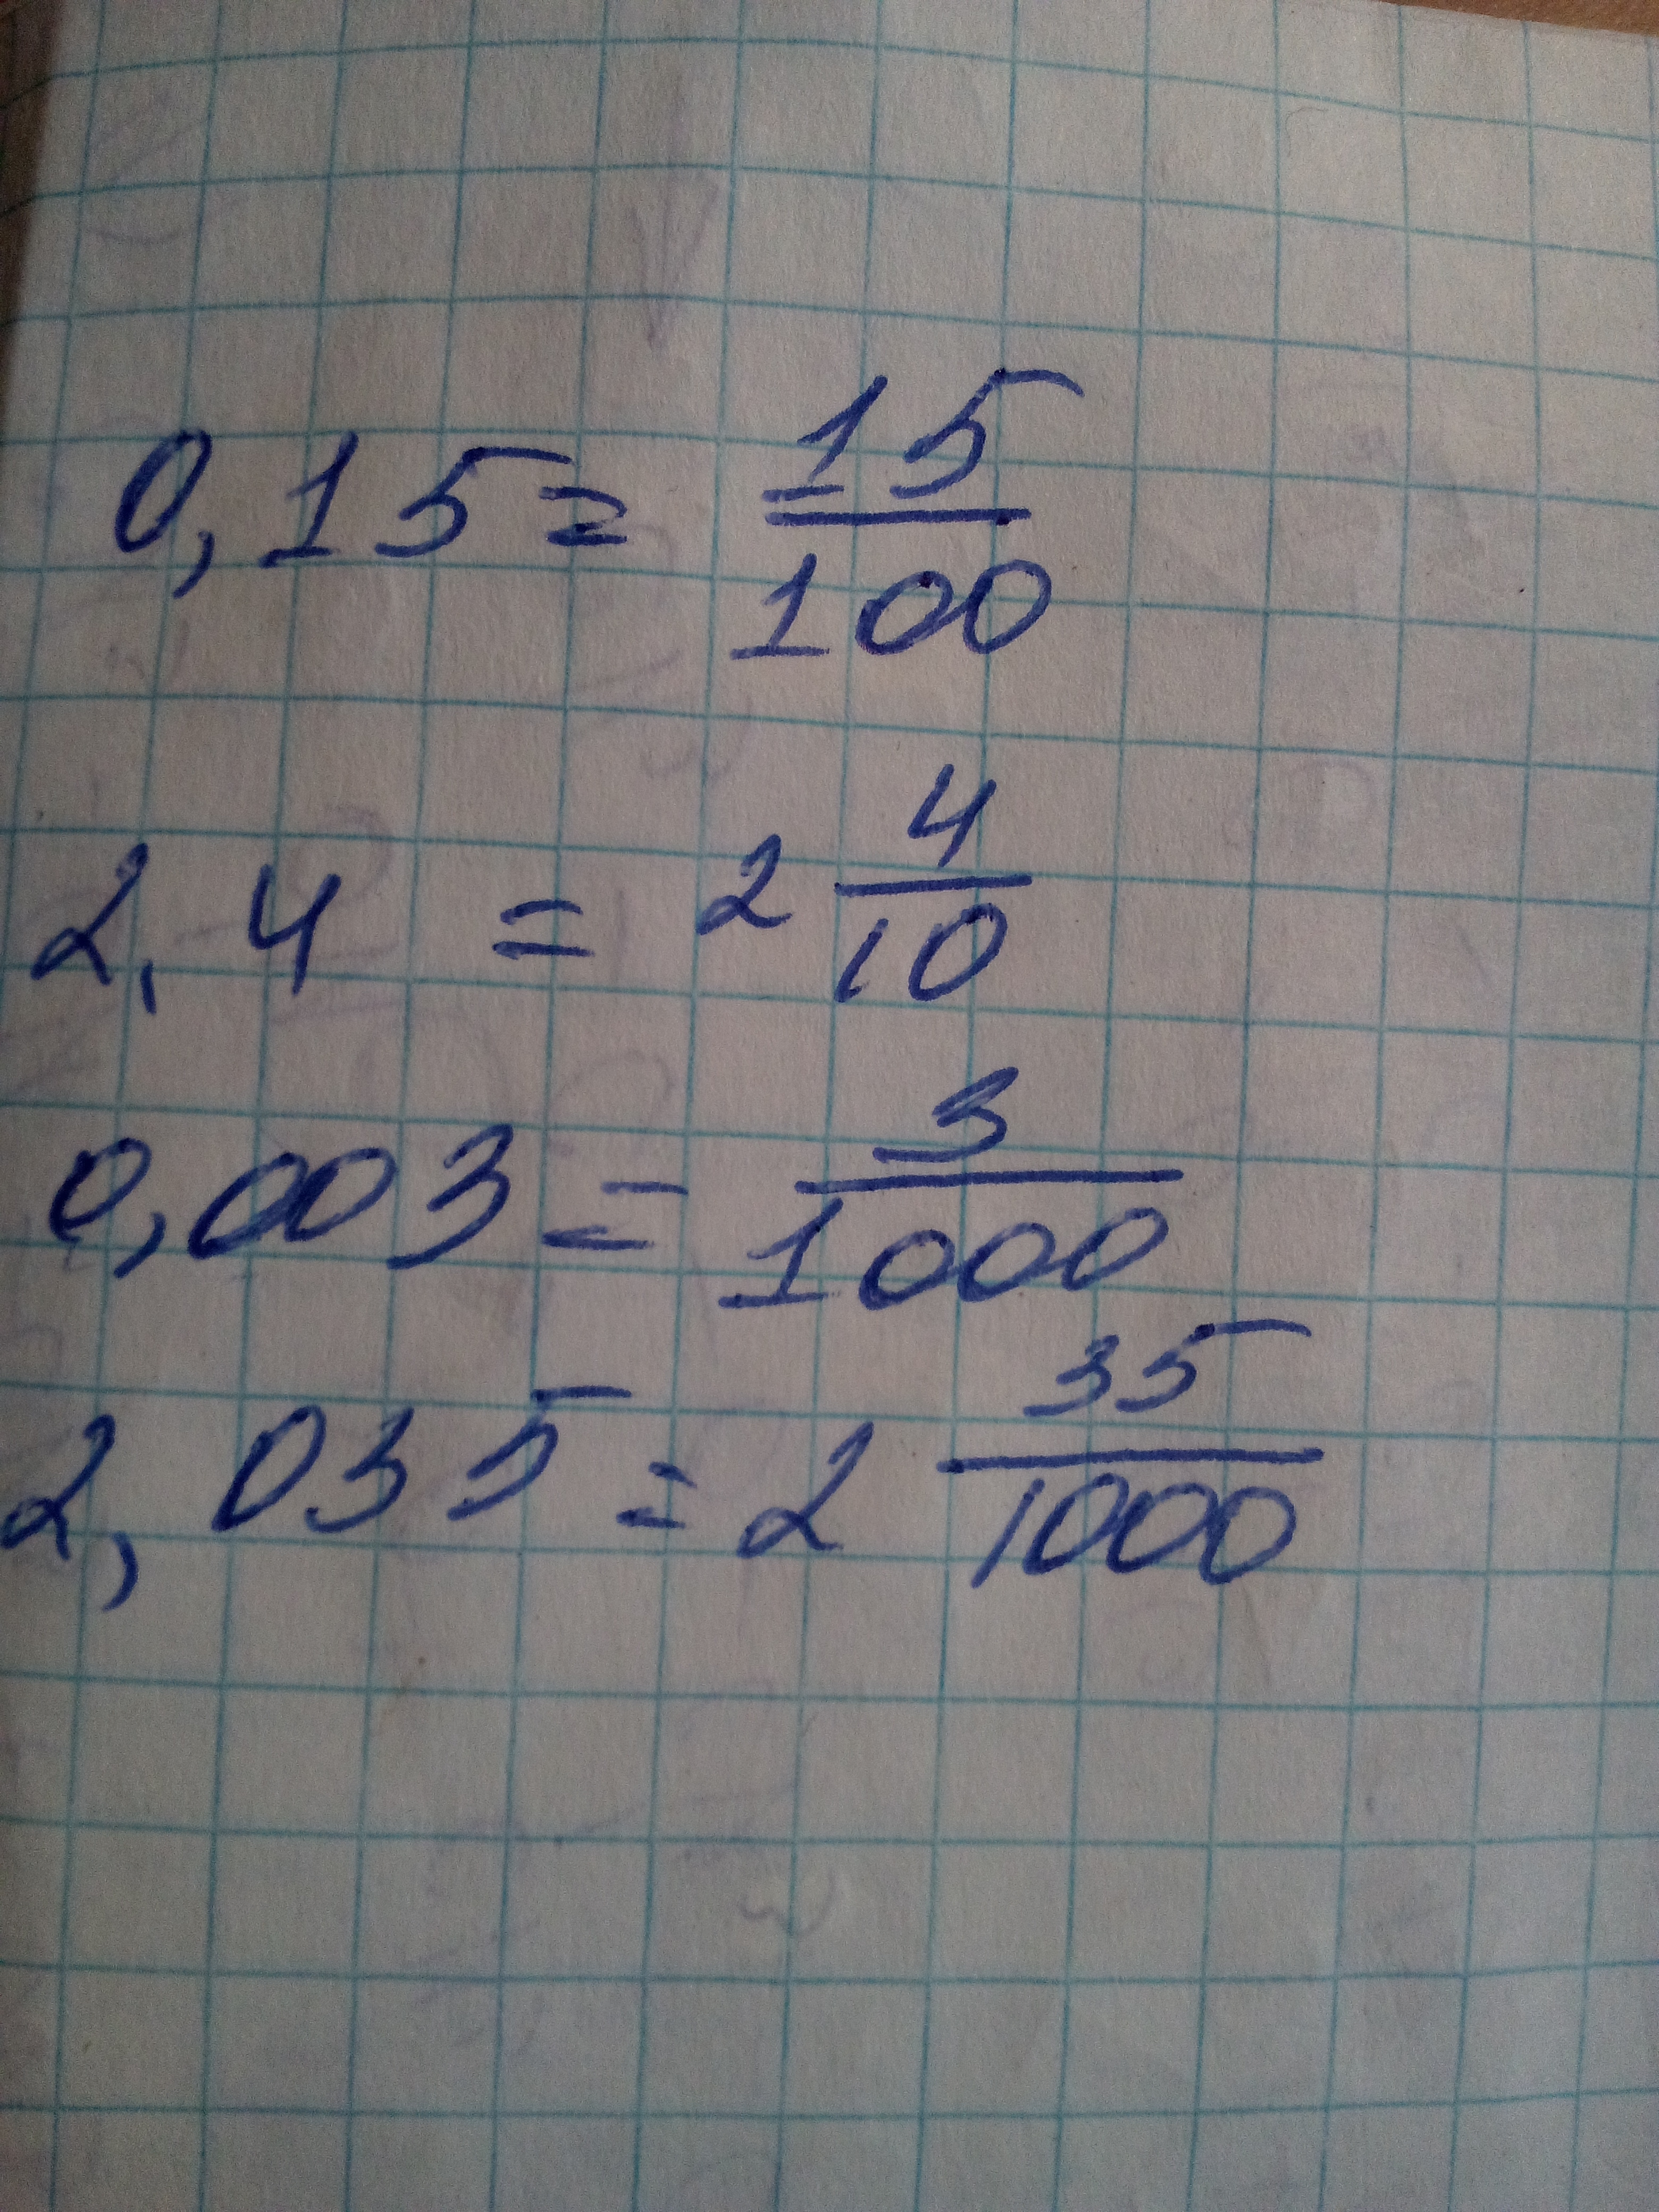 0,15 = 15/100
2,4 = 2 4/10
0,003 = 3/1000
2,035 = 2 35/1000